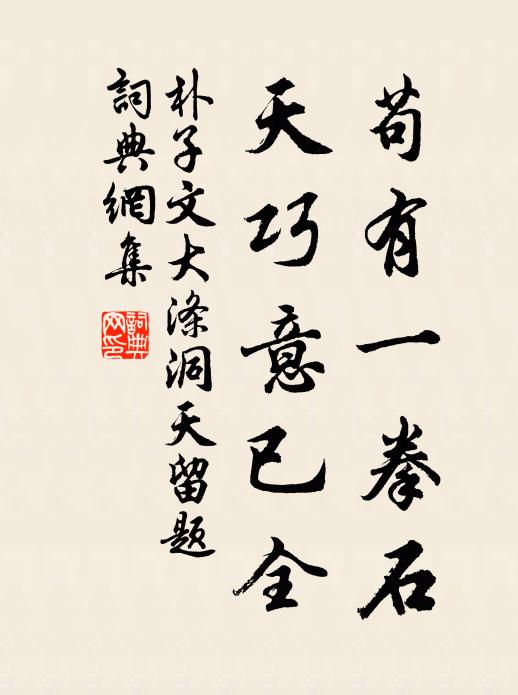 苟有一拳石
天巧意已全
朴子文大涤洞天留题
詞典網集
詞典
网印